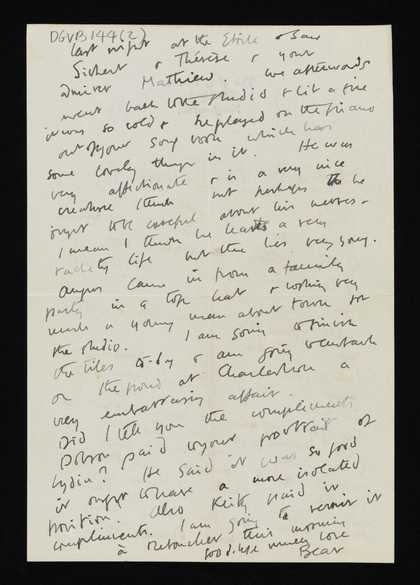 DGVB144(2)
last night at the Etoile & saw
Sickert & Thérèse & your
admirer Mathieu. We afterwards
went back to the studio & lit a fire
it was so cold & he played on the piano
out of your song book which has
some lovely things in it. He was
very affectionate & is a very nice
creature I think but perhaps he
ought to be careful about his nerves –
I mean I think he leads a very
rackety life but then he's very young.
Angus came in from a
party in a top hat & looking very
much a young man about town for
the studio. I am going to finish
the tiles to-day & am going to embark
on the pond at Charleston a
very embarrassing affair.
Did I tell you the compliments
Dobson paid to your portrait of
Lydia? He said it was so good
it ought to have a more isolated
position. Also Keith paid it
compliments. I am going to
à retoucher this morning
Good-bye much love
Bear